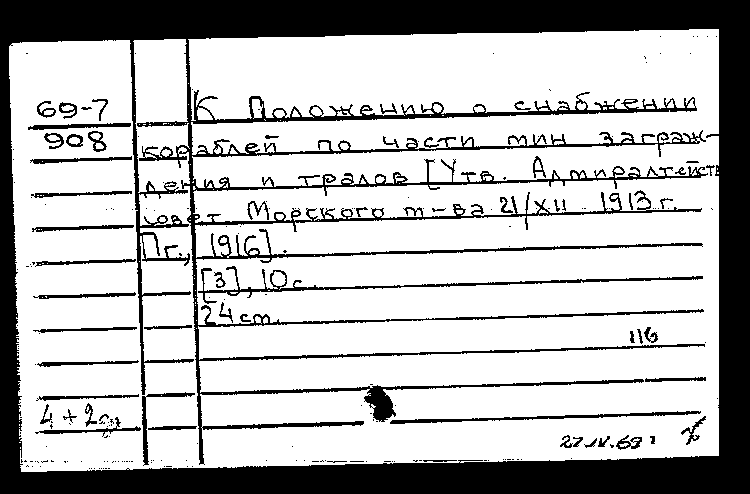 69-7
908
К Положению о снабжении
кораблей по части мин заграж-
дения и тралов [Утв. Адмиралтейств
совет Морского м-ва 21/XII 1913 г.
Пг., 1916].
[3], 10 с.
24 см.
116
4 + 2
27.IV.69 г